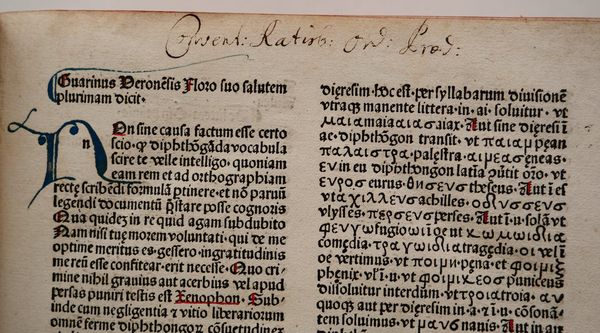 Convent: Ratisb: Ord: Præd:
Guarinus Veronēsis Floro suo salutem
plurimam dicit.
NOn sine causa factum esse certo
n
scio, ꝙ diphthōgāda vocabula
scire te velle intelligo, quoniam
eam rem et ad orthographiam
recte scribēdi formulā ꝑtinere, et nō paruū
legendi documentū p̄stare posse cognoris
Qua quidez in re quid agam subdubito
Nam nisi tue morem voluntati, qui de me
optime meritus es, gessero, ingratitudinis
me reū esse confitear, erit necesse. Quo cri/
mine nihil grauius aut acerbius vel apud
persas puniri testis est Xenophon. Sub/
inde cum negligentia et vitio librariorum
omnem ferme diphthongoꝝ cōsuetudinez
dieresim, hoc est, per syllabarum diuisionē
vtraqꝫ manente littera, in, ai, soluitur, vt
μαια μαιαασ αιαχ. Aut sine dieresi ī
ae, diphthōgon transit, vt παιαμ pean
παλαιστρα, palestra, αιμεασ eneas.
ευ in eu diphthongon latia p̄utit oīo, vt
ευροσ eurus, θησευσ theseus. Aut ī es
vt αχιλλευσ achilles, οδυσσευσ
vlysses, περσευσ perses. Aut ī u, solā, vt
φευγω fugio, ωι ī oe ut κωμωιδια
comedia, τραγωιδια tragedia, οι vel ī
oe vertimus, vt ποιμη, pena, et φοιμιξ
phenix, vel ī, u, vt φοιμικεοσ puniceus
dissoluitur interdum, vt τροια troia, αυ
quoqꝫ aut per dieresim in, a, et, u, consonā
tem soluimus, vt μαυσ nauis, Aut in au